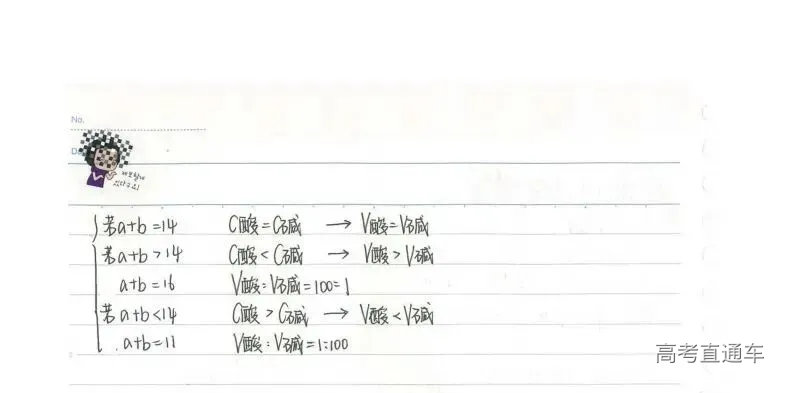 No.
Da
제보할게
있다구요!
若a+b=14 C酸=C碱 → V酸=V碱
若a+b>14 C酸<C碱 → V酸>V碱
a+b=16 V酸:V碱=100=1
若a+b<14 C酸>C碱 → V酸<V碱
a+b=11 V酸:V碱=1:100
高考直通车